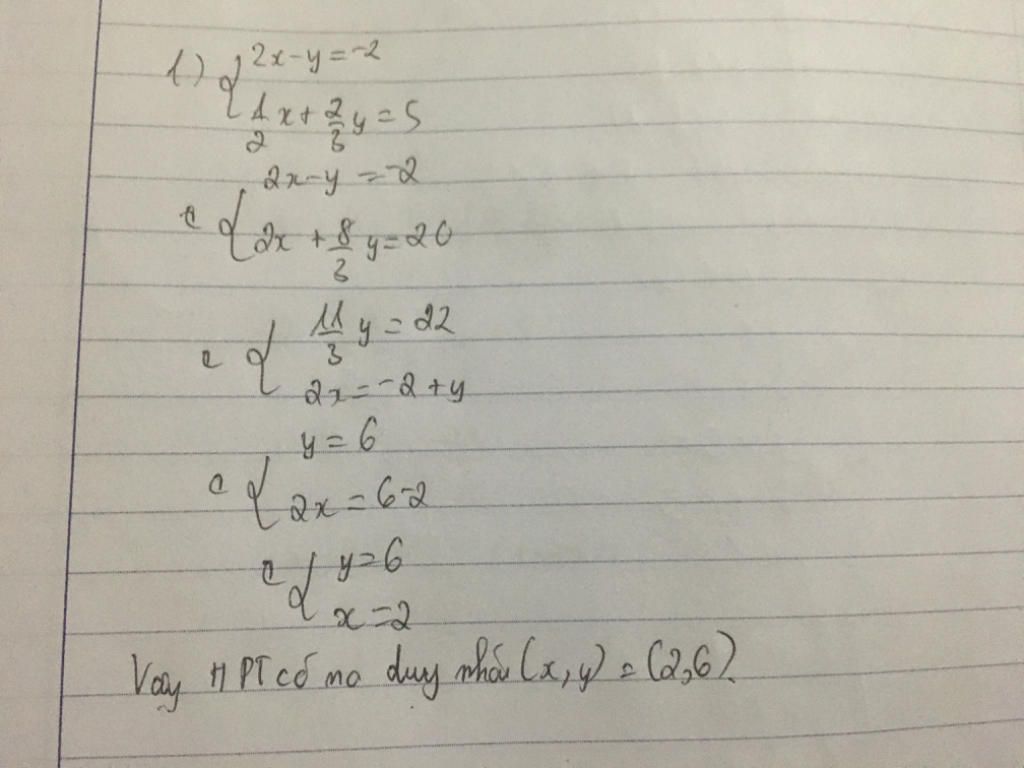 1.) { 2x-y=-2
1/2 x + 2/3 y = 5
2x-y = -2
{ 2x + 8/3 y = 20
{ 11/3 y = 22
2x = -2 + y
y = 6
{ 2x = 6-2
{ y = 6
x = 2
Vậy HPT có no duy nhất (x,y) = (2,6)